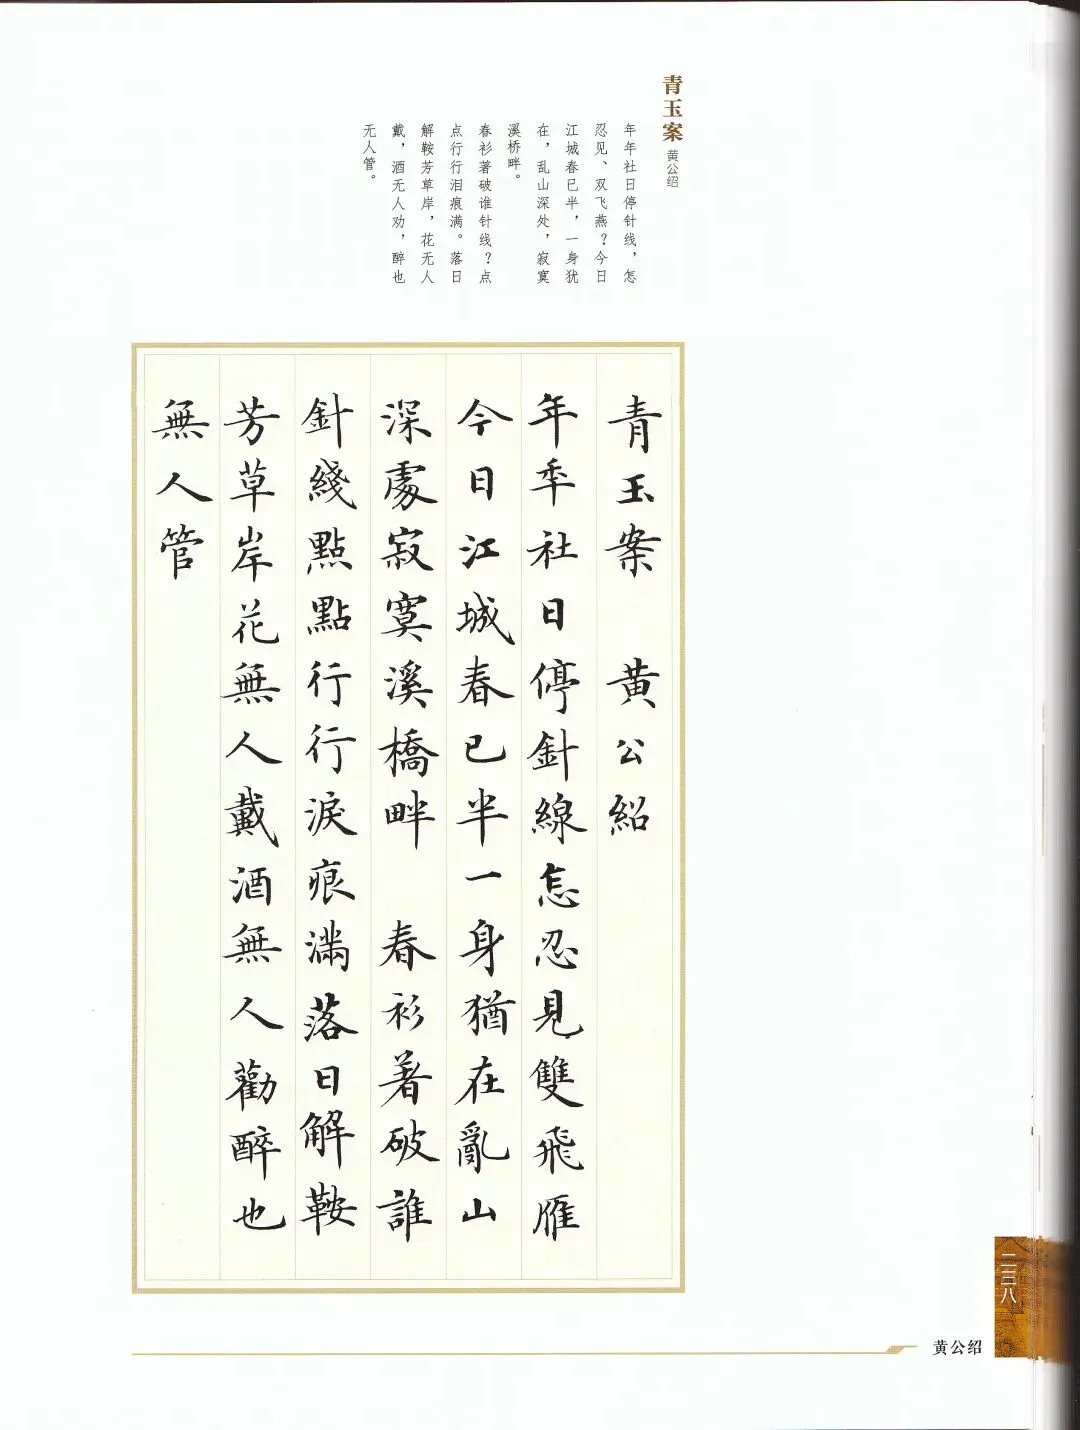 青玉案 黄公绍
年年社日停针线，怎
忍见、双飞燕？今日
江城春已半，一身犹
在，乱山深处，寂寞
溪桥畔。
春衫著破谁针线？点
点行行泪痕满。落日
解鞍芳草岸，花无人
戴，酒无人劝，醉也
无人管。
青玉案 黄公紹
年年社日停針線怎忍見雙飛雁
今日江城春已半一身猶在亂山
深處寂寞溪橋畔 春衫著破誰
針綫點點行行淚痕滿落日解鞍
芳草岸花無人戴酒無人勸醉也
無人管
二三八
黄公绍